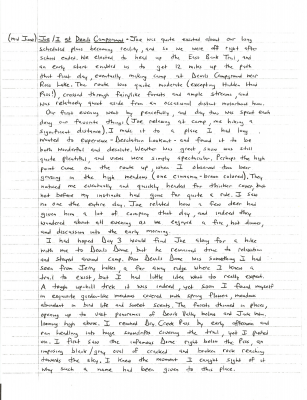 (mid June) Joe/I at Devils Campground - Joe was quite excited about our long
scheduled plans becoming reality, and so we were off right after
school ended. We elected to head up the East Bank Trail and
an early start enabled us to get 12 miles up the path
that first day, eventually making camp at Devils Campground near
Ross Lake. The route was quite moderate (excepting Hidden Hand
Pass!), crossed through fairylike forests and ample streams, and
was relatively quiet aside from an occasional distant motorboat hum.
Our first evening went by peacefully, and day two was spent each
doing our favorite things (Joe relaxing at camp, me hiking a
significant distance). I made it to a place I had long
wanted to experience - Desolation Lookout - and found it to be
both wonderful and desolate. Weather was great, snow was still
quite plentiful, and views were simply spectacular. Perhaps the high
point came on the route up, when I observed two bear
grazing in the high meadows (one cinnamon-brown colored). They
noticed me eventually and quickly headed for thicker cover, but
not before my instincts had gone for quite a ride. I saw
no one the entire day. Joe related how a few deer had
given him a lot of company that day, and indeed they
wandered about all evening as we enjoyed a fire, hot dinner,
and discussion into the early morning.
I had hoped Day 3 would find Joe along for a hike
with me to Devils Dome, but he remained true to relaxation
and stayed around camp. Now Devils Dome was something I had
seen from Jerry Lakes a far away ridge where I knew a
trail to exist, but I had little idea what to really expect.
A tough uphill trek it was indeed, yet soon I found myself
in exquisite garden-like meadows covered with spring flowers, meadows
abundant in bird life and sweet scents. The forests thinned in place,
opening up to vast panoramas of Desolation Peak, Hozomeen and Jack Mtn.
looming high above. I reached Dry Creek Pass by early afternoon and
ran headlong into huge snowfields covering the trail, yet I pushed
on. I first saw the infamous Dome right below the Pass, an
imposing black/gray oval of cracked and broken rock reaching
towards the sky. I knew the moment I caught sight of it
why such a name had been given to this place.